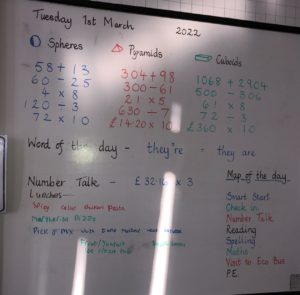 Tuesday 1st March 2022
Spheres
58 + 13
60 - 25
4 x 8
120 - 3
72 x 10
Pyramids
304 + 98
300 - 61
21 x 5
630 - 7
£14.20 x 10
Cuboids
1068 + 2904
500 - 306
61 x 8
72 - 3
£360 x 10
Word of the day - they're = they are
Number Talk - £32.16 x 3
Lunches -
Pasta
Pizza
Pick n mix with
Map of the day
Smart Start
Check in
Number Talk
Reading
Spelling
Maths
Visit to Eco Bus
P.E.